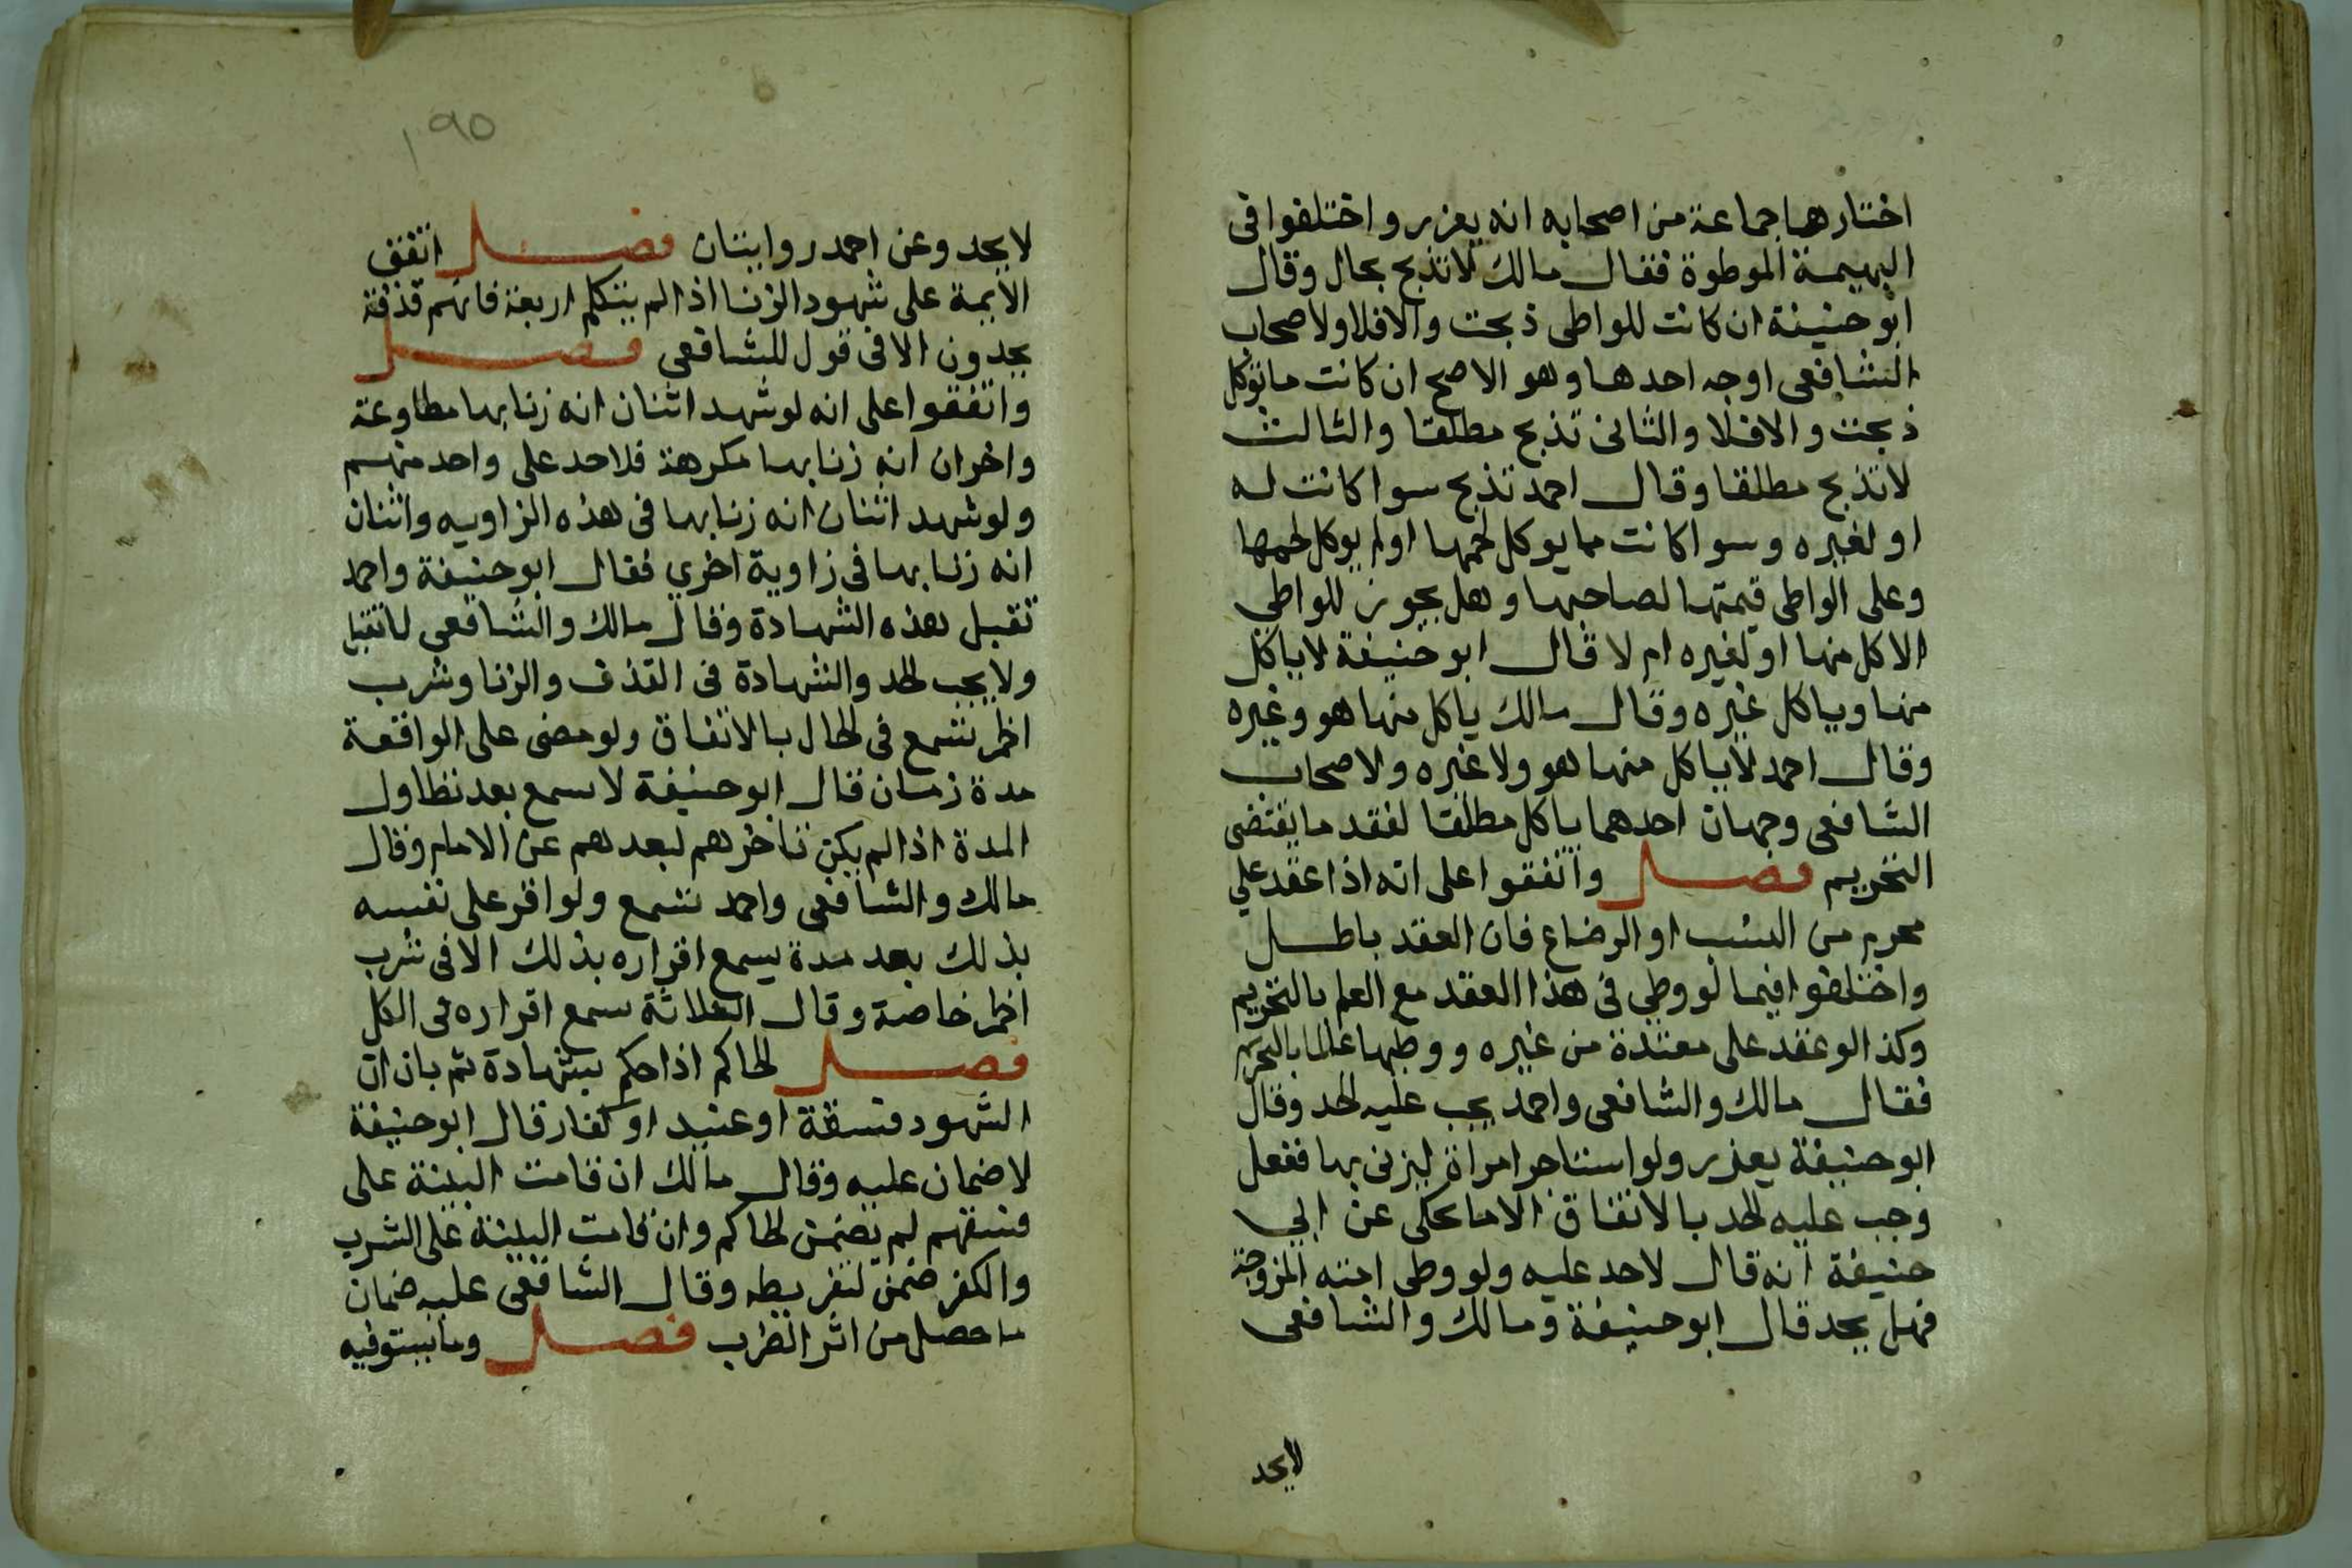 اختارها جماعة من اصحابه انه يعزر واختلفوا فى
البهيمة الموطوة فقال مالك لا تذبح بحال وقال
ابو حنيفة ان كانت للواطى ذبحت والا فلا ولاصحاب
الشافعى اوجه احدها وهو الاصح ان كانت ما توكل
ذبحت والا فلا والثانى تذبح مطلقا والثالث
لا تذبح مطلقا وقال احمد تذبح سوا كانت له
او لغيره وسوا كانت مما يوكل لحمها او لم يوكل لحمها
وعلى الواطى قيمتها لصاحبها وهل يجوز للواطى
الاكل منها او لغيره ام لا قال ابو حنيفة لا ياكل
منها وياكل غيره وقال مالك ياكل منها هو وغيره
وقال احمد لا ياكل منها هو ولا غيره ولاصحاب
الشافعى وجهان احدهما ياكل مطلقا لفقد ما يقتضى
التحريم فصل واتفقوا على انه اذا عقد علي
محرم من النسب او الرضاع فان العقد باطل
واختلفوا فيما لو وطي فى هذا العقد مع العلم بالتحريم
وكذا لو عقد على معتدة من غيره ووطيها عالما بالتحريم
فقال مالك والشافعى واحمد يجب عليه الحد وقال
ابو حنيفة يعذر ولو استاجر امراة ليزنى بها ففعل
وجب عليه الحد بالاتفاق الا ما يحكى عن ابي
حنيفة انه قال لا حد عليه ولو وطى امته المزوجة
فهل يحد قال ابو حنيفة ومالك والشافعى
لا يحد
١٩٥
لا يحد وعن احمد روايتان فصل اتفق
الايمة على شهود الزنا اذا لم يتكلم اربعة فانهم قذفة
يحدون الا فى قول للشافعى فصل
واتفقوا على انه لو شهد اثنان انه زنا بها مطاوعة
واخران انه زنا بها مكرهة فلا حد على واحد منهم
ولو شهد اثنان انه زنا بها فى هذه الزاويه واثنان
انه زنا بها فى زاوية اخري فقال ابو حنيفة واحمد
تقبل هذه الشهادة وقال مالك والشافعى لا تقبل
ولا يجب الحد والشهادة فى القذف والزنا وشرب
الخمر تسمع فى الحال بالاتفاق ولو مضى على الواقعة
مدة زمان قال ابو حنيفة لا تسمع بعد تطاول
المدة اذا لم يكن تاخرهم لبعدهم عن الامام وقال
مالك والشافعى واحمد تسمع ولو اقر على نفسه
بذلك بعد مدة يسمع اقراره بذلك الا فى شرب
الخمر خاصة وقال الثلاثة يسمع اقراره فى الكل
فصل الحاكم اذا حكم بشهادة ثم بان ان
الشهود فسقة او عبيد او كفار قال ابو حنيفة
لا ضمان عليه وقال مالك ان قامت البينة على
فسقهم لم يضمن الحاكم وان قامت البينة على الشرب
والكفر ضمن لتفريطه وقال الشافعى عليه ضمان
ما حصل من اثر الضرب فصل وما يستوفيه